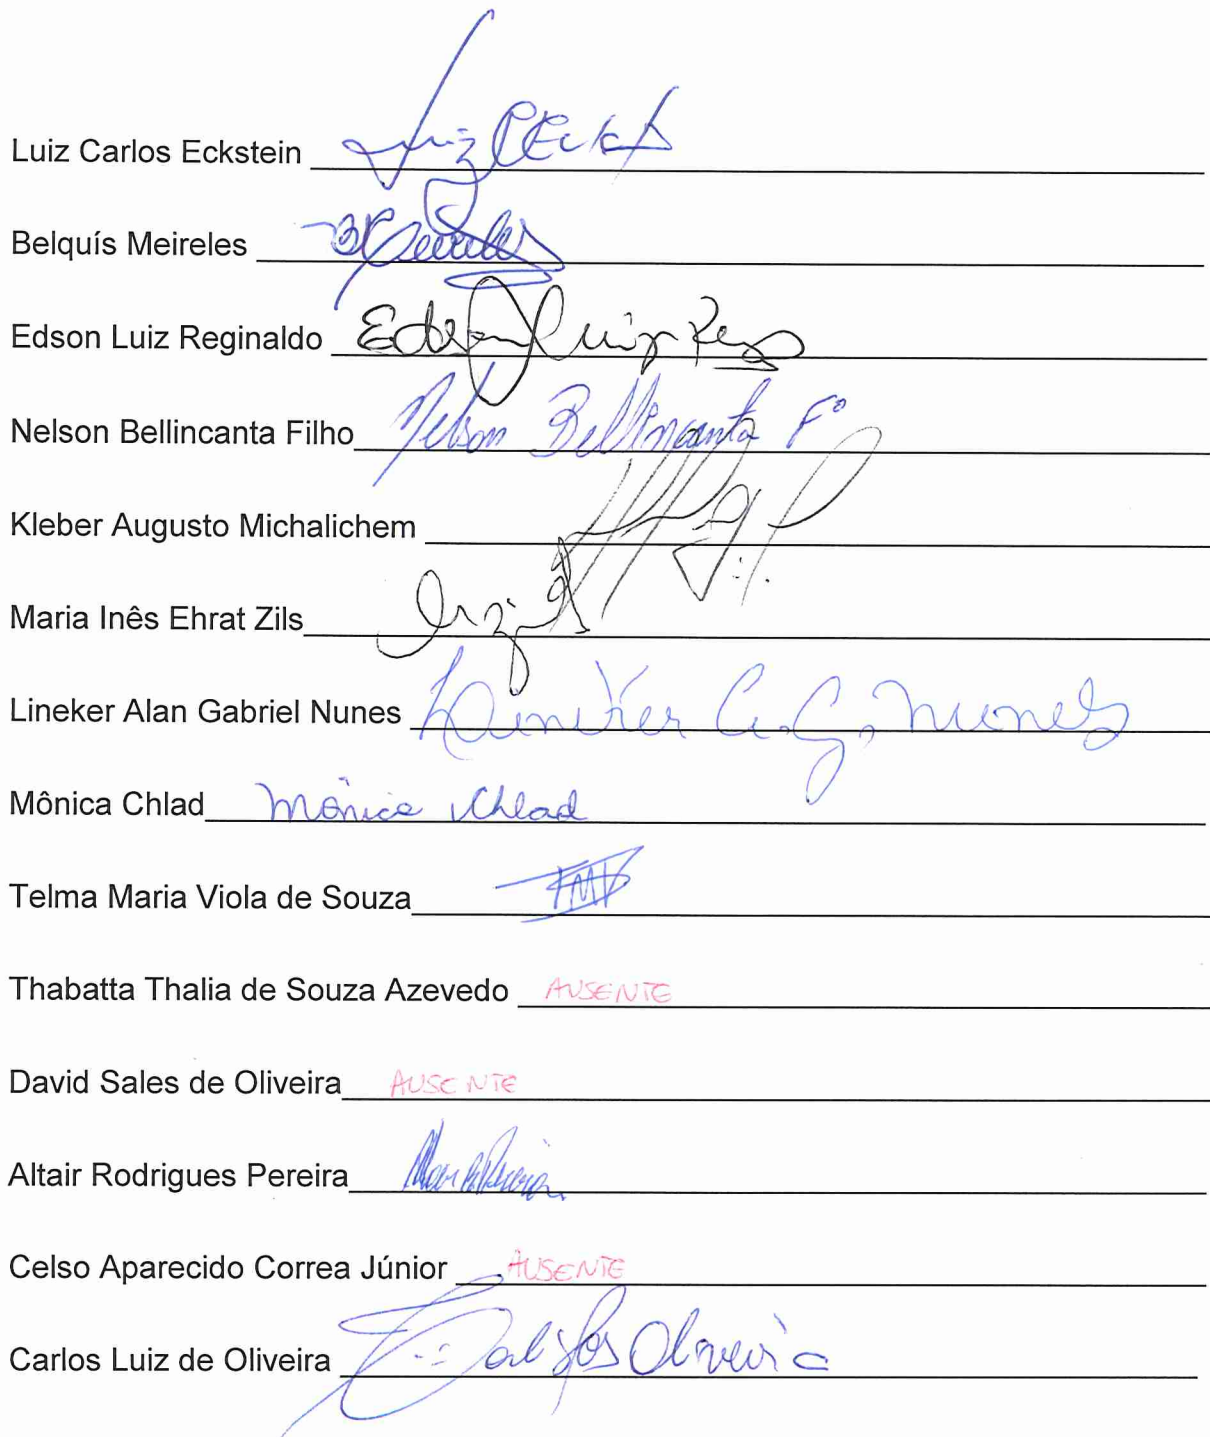 Luiz Carlos Eckstein Luiz C Eckst
Belquís Meireles BMeireles
Edson Luiz Reginaldo Edson Luiz Reg
Nelson Bellincanta Filho Nelson Bellincanta Fº
Kleber Augusto Michalichem
Maria Inês Ehrat Zils
Lineker Alan Gabriel Nunes Lineker A. G. Nunes
Mônica Chlad Mônica Chlad
Telma Maria Viola de Souza TMV
Thabatta Thalia de Souza Azevedo AUSENTE
David Sales de Oliveira AUSENTE
Altair Rodrigues Pereira
Celso Aparecido Correa Júnior AUSENTE
Carlos Luiz de Oliveira Oliveira